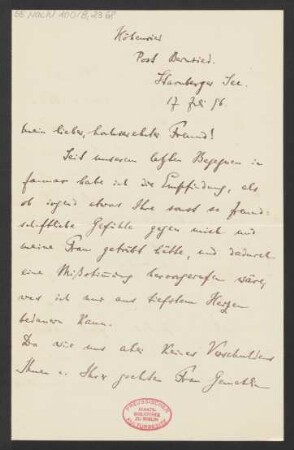 Höhenried
Post Bernried.
Starnberger See.
17 Juli 96.
Mein lieber, hochverehrter Freund!
Seit unserem letzten Begegnen im
Januar habe ich die Empfindung, als
ob irgend etwas Ihre sonst so freund-
schaftliche Gefühle gegen mich und
meine Frau getrübt hätte, und dadurch
eine Mißstimmung hervorgerufen wäre,
was ich nur aus tiefstem Herzen
bedauern kann.
Da wir uns aber keines Verschuldens
Ihnen u. Ihrer geehrten Frau Gemahlin
PREUSSISCHER
STAATS-
BIBLIOTHEK
ZU BERLIN
KULTURBESITZ